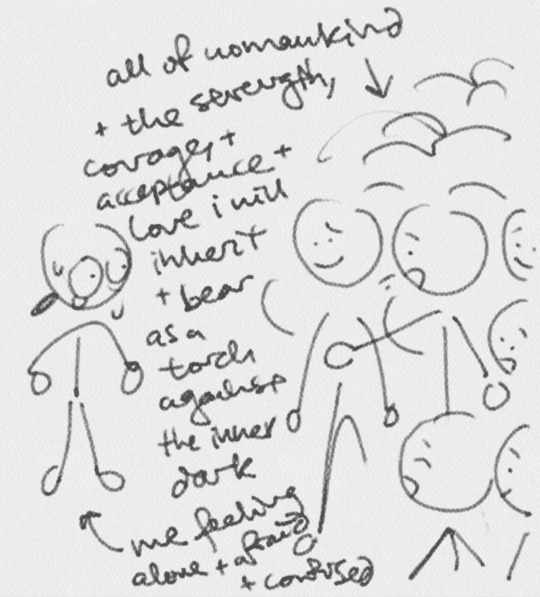 all of womankind
+ the strength,
courage, +
acceptance +
love i will
inherit
+ bear
as a
torch
against
the inner
dark
me feeling
alone + afraid
+ confused